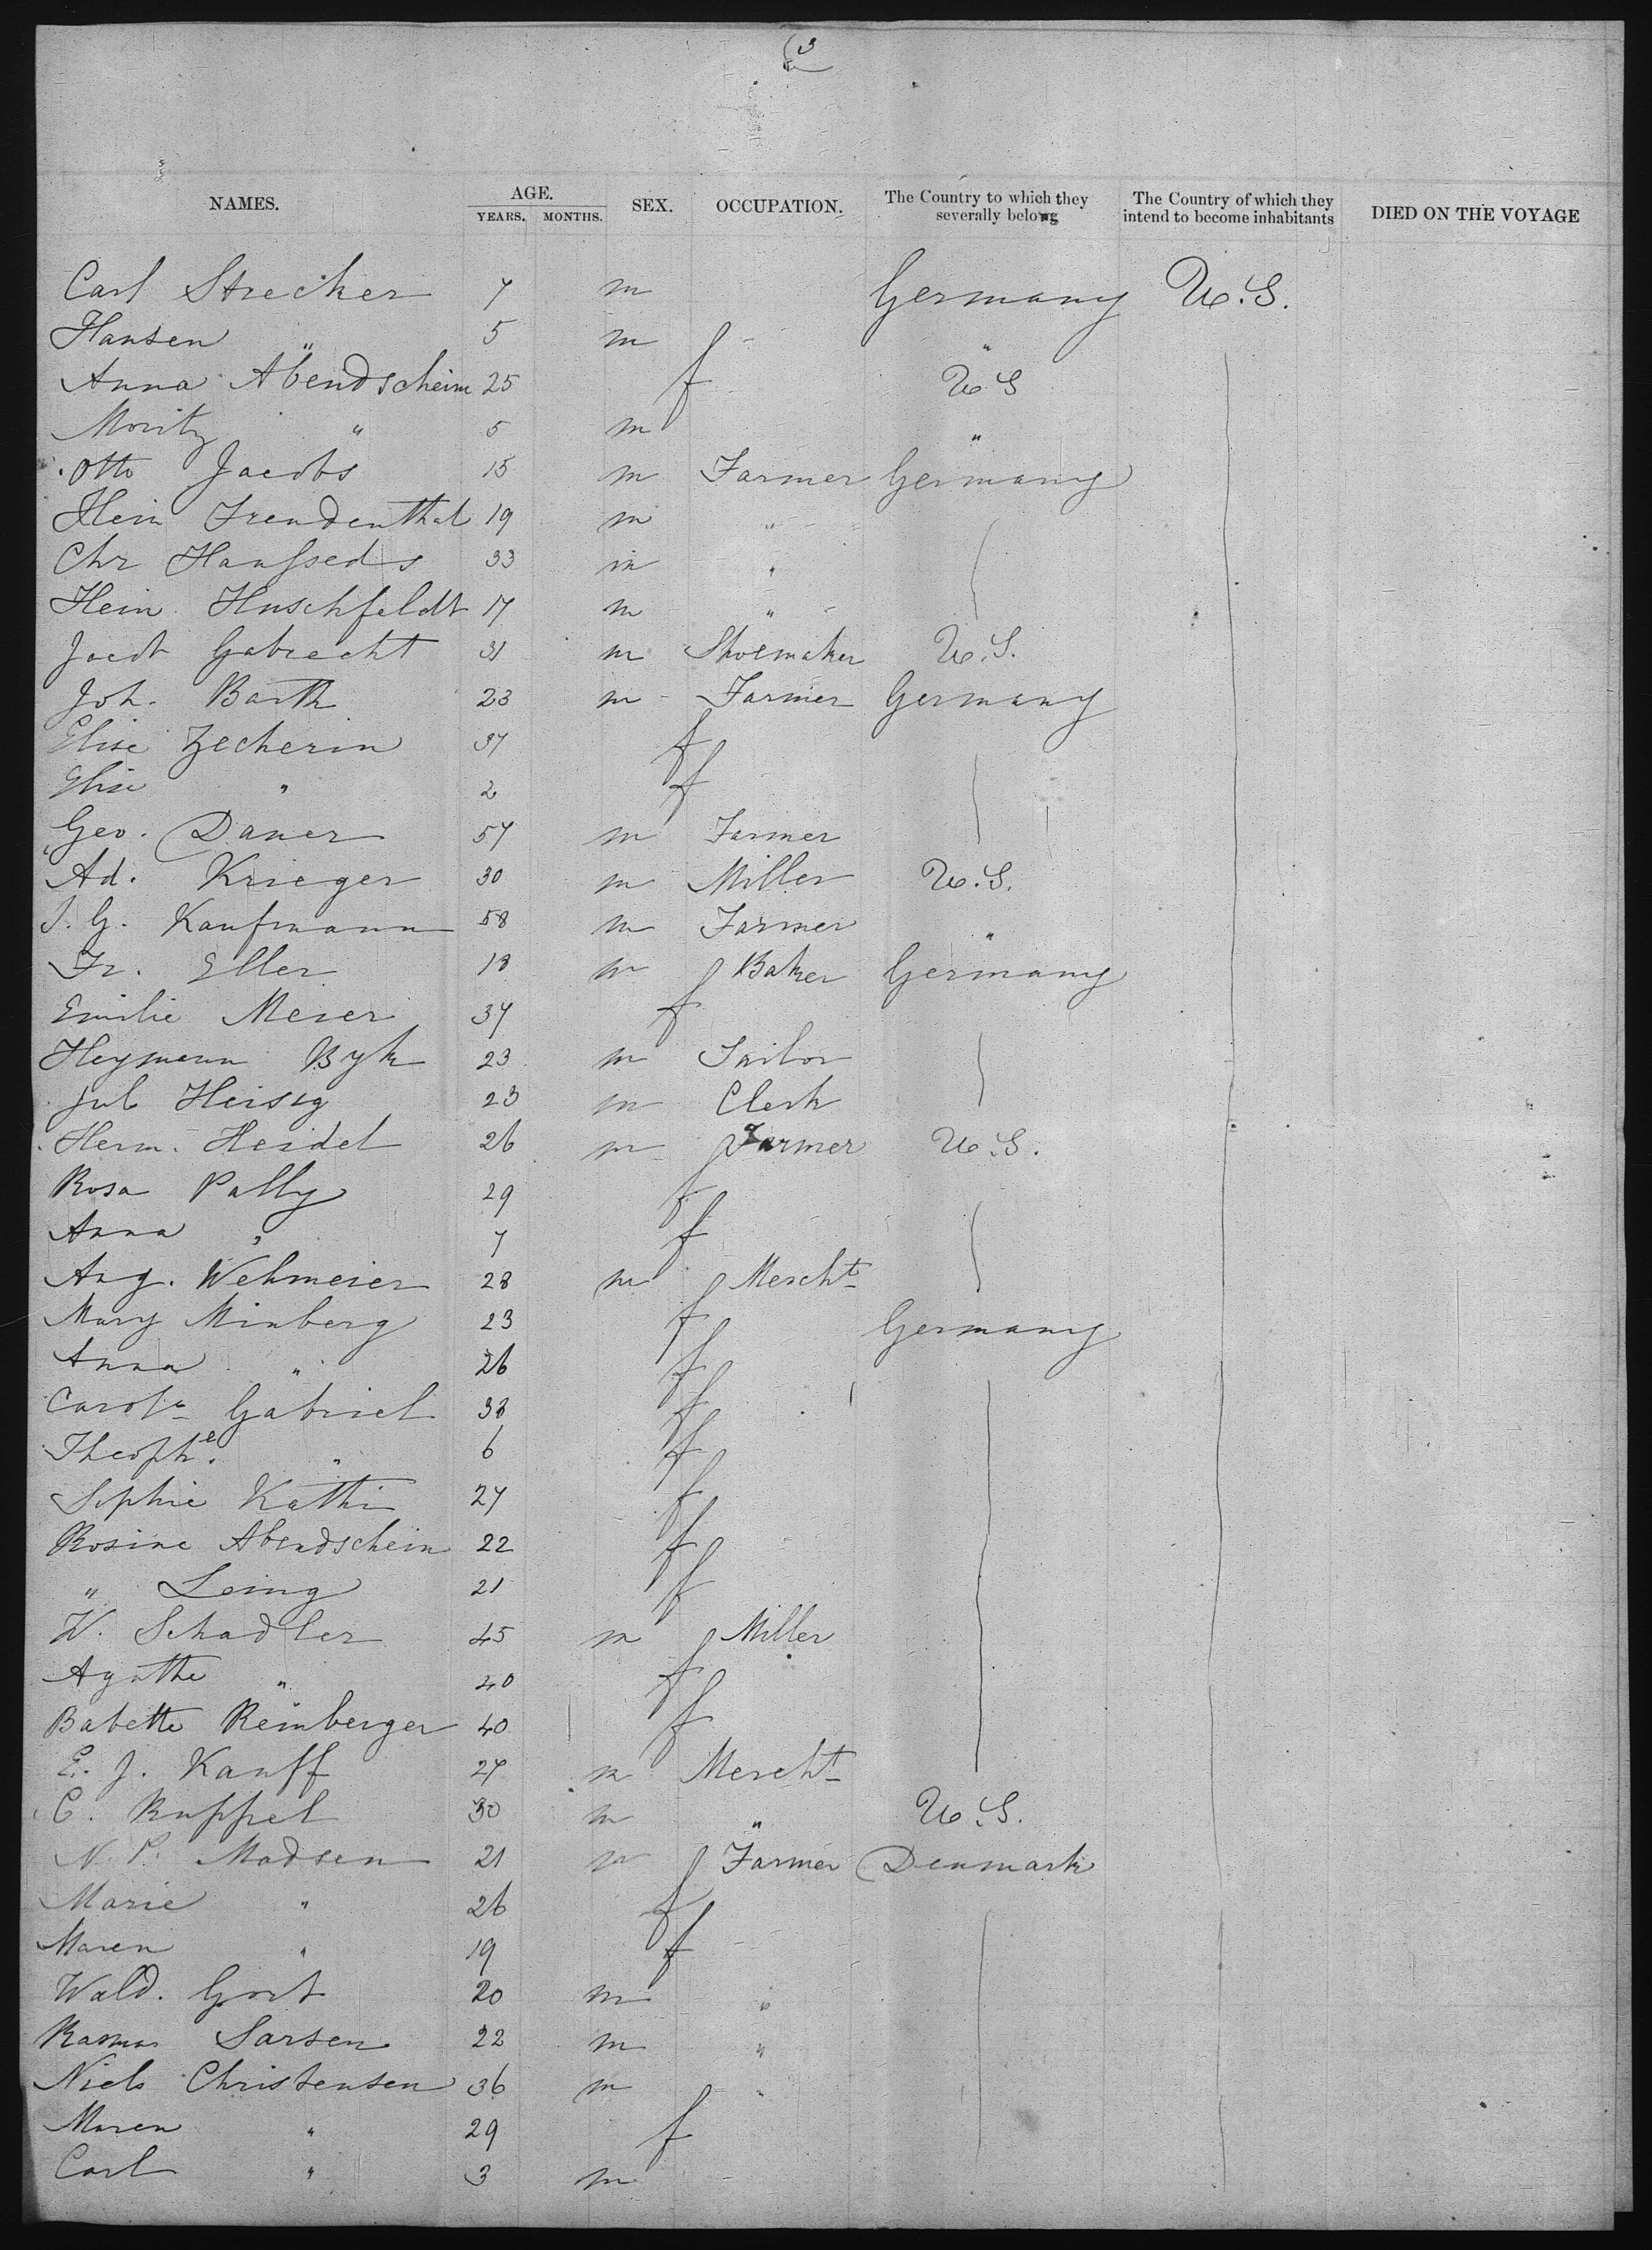 3
NAMES. AGE. YEARS. MONTHS. SEX. OCCUPATION. The Country to which they severally belong The Country of which they intend to become inhabitants DIED ON THE VOYAGE
Carl Strecker 7 m Germany U.S.
Hansen " 5 m "
Anna Abendscheim 25 f U.S
Moritz " 5 m "
Otto Jacobs 15 m Farmer Germany
Hein Freudenthal 19 m "
Chr Hanssed s 33 m "
Hein Huschfeldt 17 m "
Jacob Gabrecht 31 m Shoemaker U.S.
Joh. Barth 23 m Farmer Germany
Elise Zecherin 37 f
Elise " 2 f
Geo. Daner 57 m Farmer
Ad. Krieger 30 m Miller U.S.
J. G. Kaufmann 58 m Farmer "
Fr. Eller 18 m Baker Germany
Emilie Meier 37 f
Heymann Byk 23 m Tailor
Jul Heisig 23 m Clerk
Herm. Heidel 26 m Farmer U.S.
Rosa Pally 29 f
Anna " 7 f
Aug. Wehmeier 28 m Mercht
Mary Minberg 23 f Germany
Anna " 26 f
Carole Gabriel 38 f
Theophe. " 6 f
Sophie Kathi 27 f
Rosine Abendschein 22 f
" Leing 21 f
W. Schadler 45 m Miller
Agathe " 40 f
Babette Reinberger 40 f
E. J. Kauff 27 m Mercht
C. Ruppel 30 m " U.S.
N. P. Madsen 21 m Farmer Denmark
Marie " 26 f
Maren " 19 f
Wald. Gort 20 m "
Rasmus Larsen 22 m "
Niels Christensen 36 m "
Maren " 29 f
Carl " 3 m